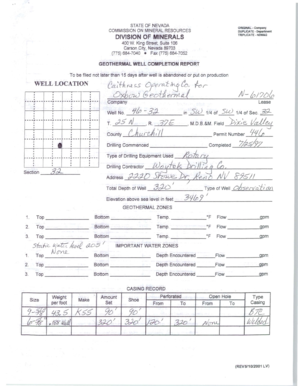 STATE OF NEVADA
COMMISSION ON MINERAL RESOURCES
DIVISION OF MINERALS
400 W. King Street, Suite 106
Carson City, Nevada 89703
(775) 684-7040 • Fax (775) 684-7052
GEOTHERMAL WELL COMPLETION REPORT
To be filed not later than 15 days after well is abandoned or put on production
WELL LOCATION
Caithness Operating Co. for
Oxbow Geothermal N-61706
Company Lease
Well No 46-32 SW 1/4 of SW 1/4 of Sec 32
T 25N R 37E M D B &M Field Dixie Valley
County Churchill Permit Number 446
Drilling Commenced Completed
Type of Drilling Equipment Used Rotary
Drilling Contractor Drilling Co.
Address 2220 Reno NV 89511
Total Depth of Well 320' Type of Well observation
Elevation above sea level in feet 3469'
Section 32
GEOTHERMAL ZONES
1. Top Bottom Temp °F Flow gpm
2. Top Bottom Temp °F Flow gpm
3. Top Bottom Temp °F Flow gpm
Static water level IMPORTANT WATER ZONES
1. Top None Bottom Depth Encountered Flow gpm
2. Top Bottom Depth Encountered Flow gpm
3. Top Bottom Depth Encountered Flow gpm
CASING RECORD
Size Weight per foot Make Amount Set Shoe Perforated From To Open Hole From To Type Casing
43.5 K55 90' 90'
320' 320' 120' 320' None Welded